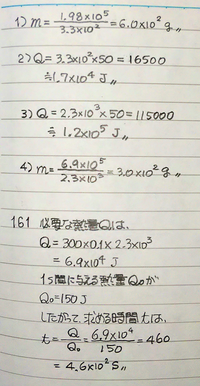 1) m = 1.98×10⁵/3.3×10² = 6.0×10² g 〃
2) Q = 3.3×10²×50 = 16500
≒1.7×10⁴ J 〃
3) Q = 2.3×10³×50 = 115000
≒ 1.2×10⁵ J 〃
4) m = 6.9×10⁵/2.3×10³ = 3.0×10² g 〃
161 必要な熱量Qは、
Q = 300×0.1×2.3×10³
= 6.9×10⁴ J
1s間に与える熱量Q₀が
Q₀=150J
したがって、求める時間tは、
t = Q/Q₀ = 6.9×10⁴/150 = 460
= 4.6×10² s 〃